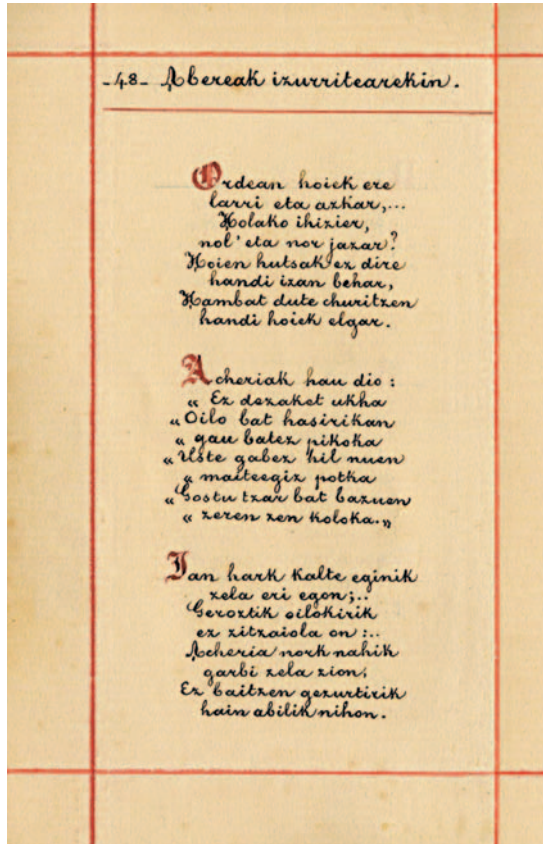 -48- Abereak izurritearekin.
Ordean hoiek ere
larri eta azkar,...
Holako ihizier,
nol' eta nor jazar?
Hoien hutsak ez dire
handi izan behar,
Hambat dute churitzen
handi hoiek elgar.
Acheriak hau dio:
" Ez dezaket ukha
" Oilo bat hasirikan
" gau batez pikoka
" Uste gabez hil nuen
" maiteegiz potka
" Gostu tzar bat bazuen
" zeren zen koloka. „
Jan hark kalte eginik
zela eri egon;..
Geroztik oilokirik
ez zitzaiola on:..
Acheria nork nahik
garbi zela zion;
Ez baitzen gezurtirik
hain abilik nihon.